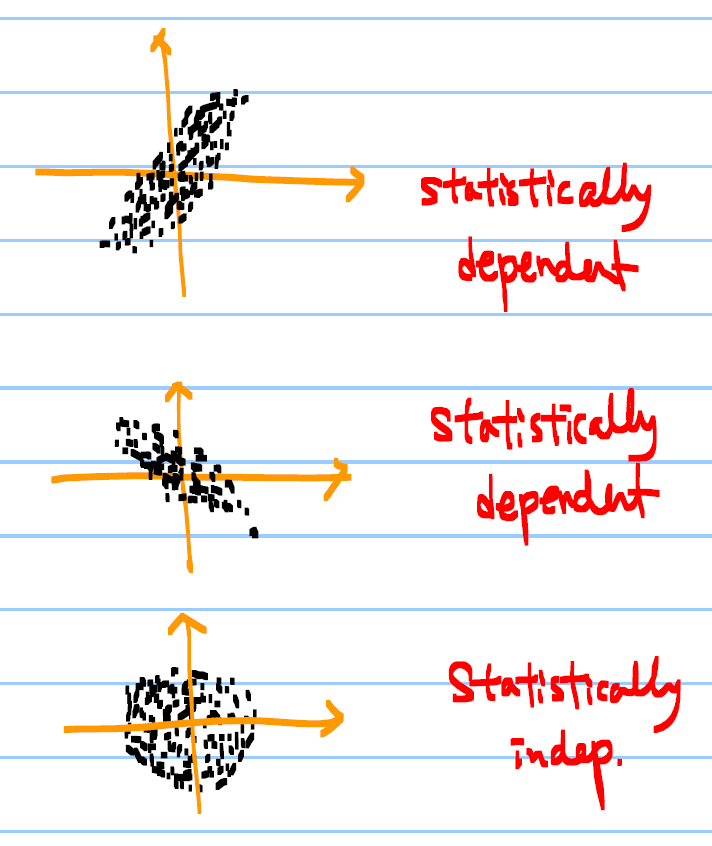 statistically
dependent
statistically
dependent
Statistically
indep.